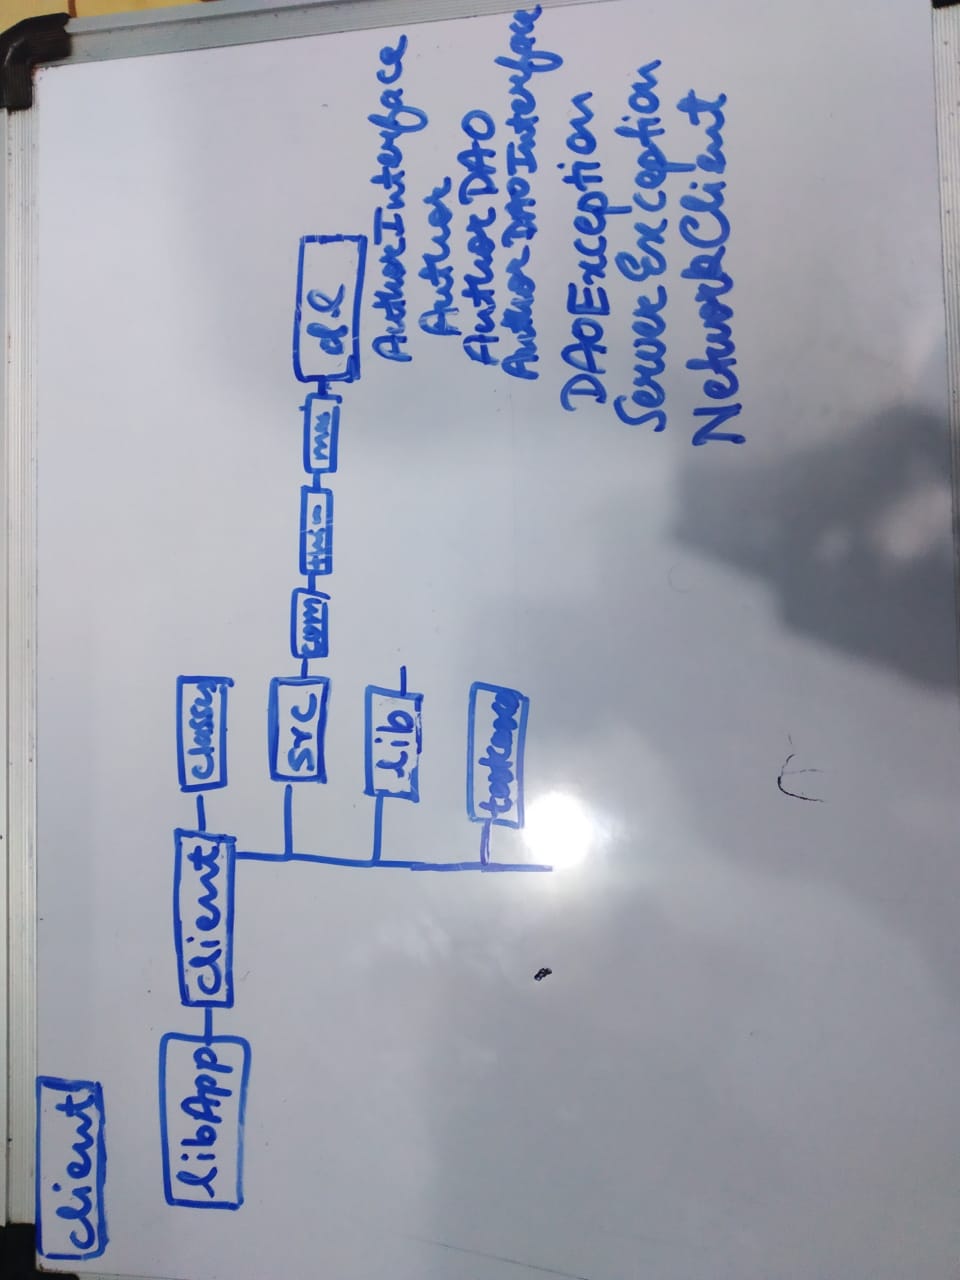 client
libApp client classes
src com dl
lib
AuthorInterface
Author
AuthorDAO
AuthorDAOInterface
DAOException
ServerException
NetworkClient